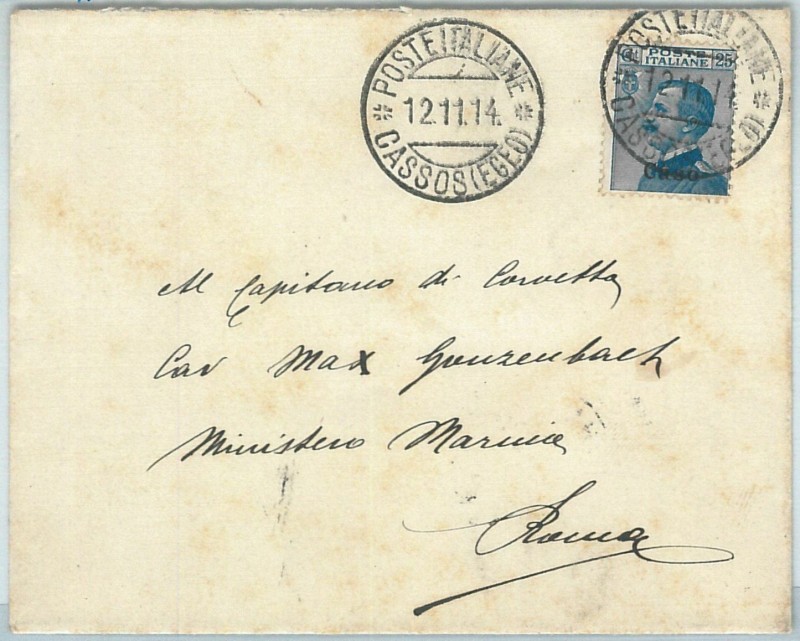 * POSTE ITALIANE *
12.11.14.
CASSOS (EGEO)
* POSTE ITALIANE *
12.11.14.
CASSOS (EGEO)
POSTE
ITALIANE
25
Caso
Al Capitano di Corvetta
Cav Max Gonzenbach
Ministero Marina
Roma